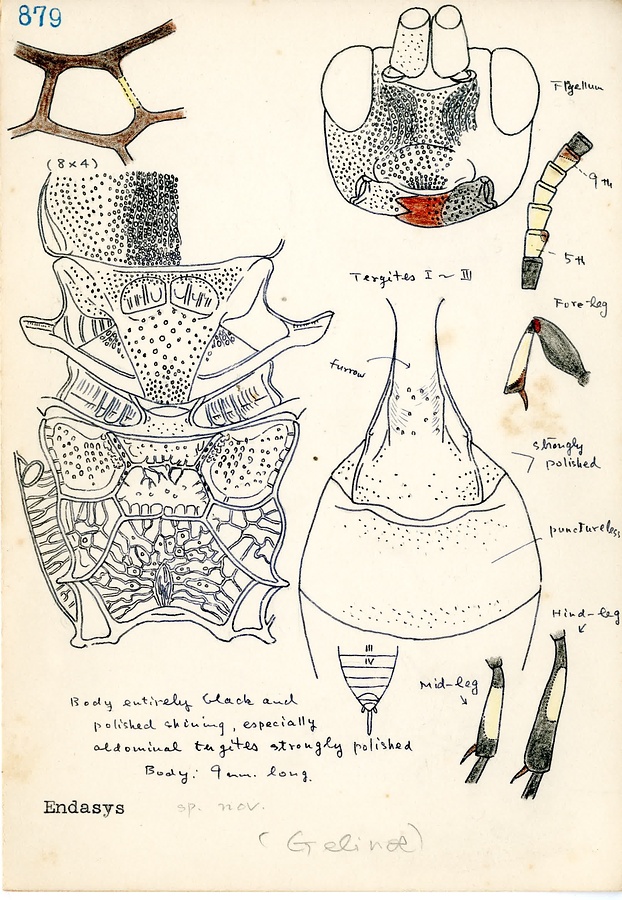 879
(8x4)
Flagellum
9th
5th
Tergites I ~ III
Fore-leg
furrow
strongly
polished
punctureless
Hind-leg
III
IV
Mid-leg
Body entirely black and
polished shining, especially
abdominal tergites strongly polished
Body: 9 mm. long.
Endasys sp. nov.
(Gelinae)